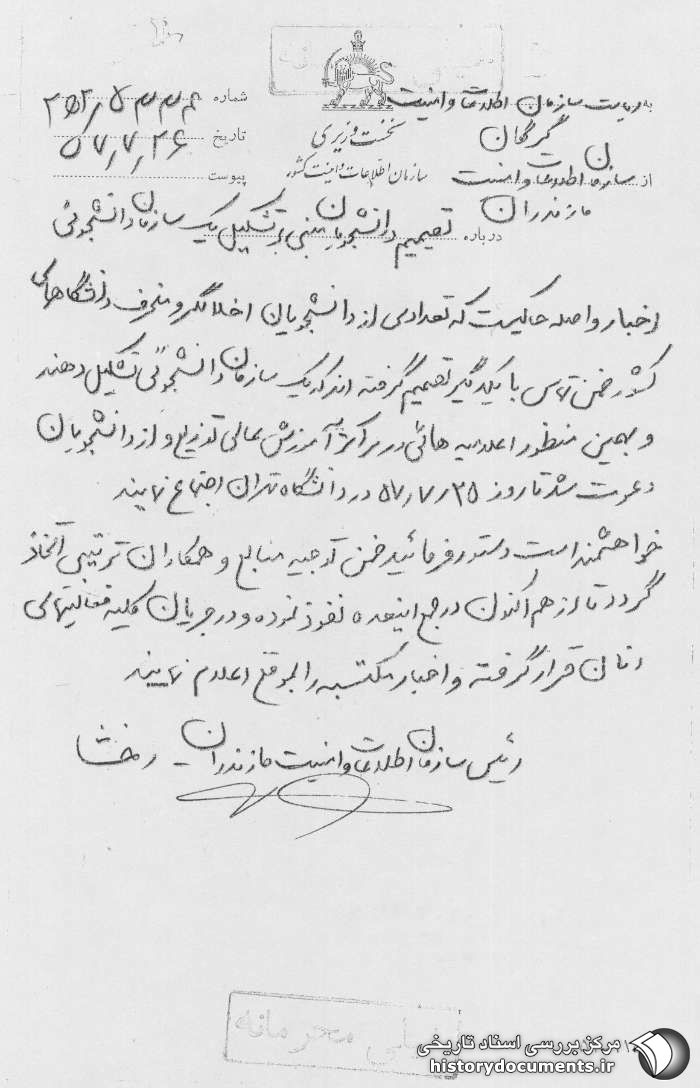 به ریاست سازمان اطلاعات و امنیت
گرگان
از سازمان اطلاعات و امنیت
مازندران
نخست وزیری
سازمان اطلاعات و امنیت کشور
شماره
تاریخ ۵۷٫۷٫۲۶
پیوست
درباره تصمیم دانشجویان مبنی بر تشکیل یک سازمان دانشجوئی
اخبار واصله حاکیست که تعدادی از دانشجویان اخلالگر و منحرف دانشگاههای
کشور ضمن تماس با یکدیگر تصمیم گرفته اند که یک سازمان دانشجوئی تشکیل دهند
و بهمین منظور اعلامیه هائی در مراکز آموزش عالی توزیع و از دانشجویان
دعوت شد تا روز ۵۷٫۷٫۲۵ در دانشگاه تهران اجتماع نمایند
خواهشمند است دستور فرمائید ضمن توجیه منابع و همکاران ترتیبی اتخاذ
گردد تا از هم اکنون در جمع اینعده نفوذ نموده و در جریان کلیه فعالیتهای
آنان قرار گرفته و اخبار مکتسبه را بموقع اعلام نمایند
رئیس سازمان اطلاعات و امنیت مازندران - رخشا
خیلی محرمانه
مرکز بررسی اسناد تاریخی
historydocuments.ir